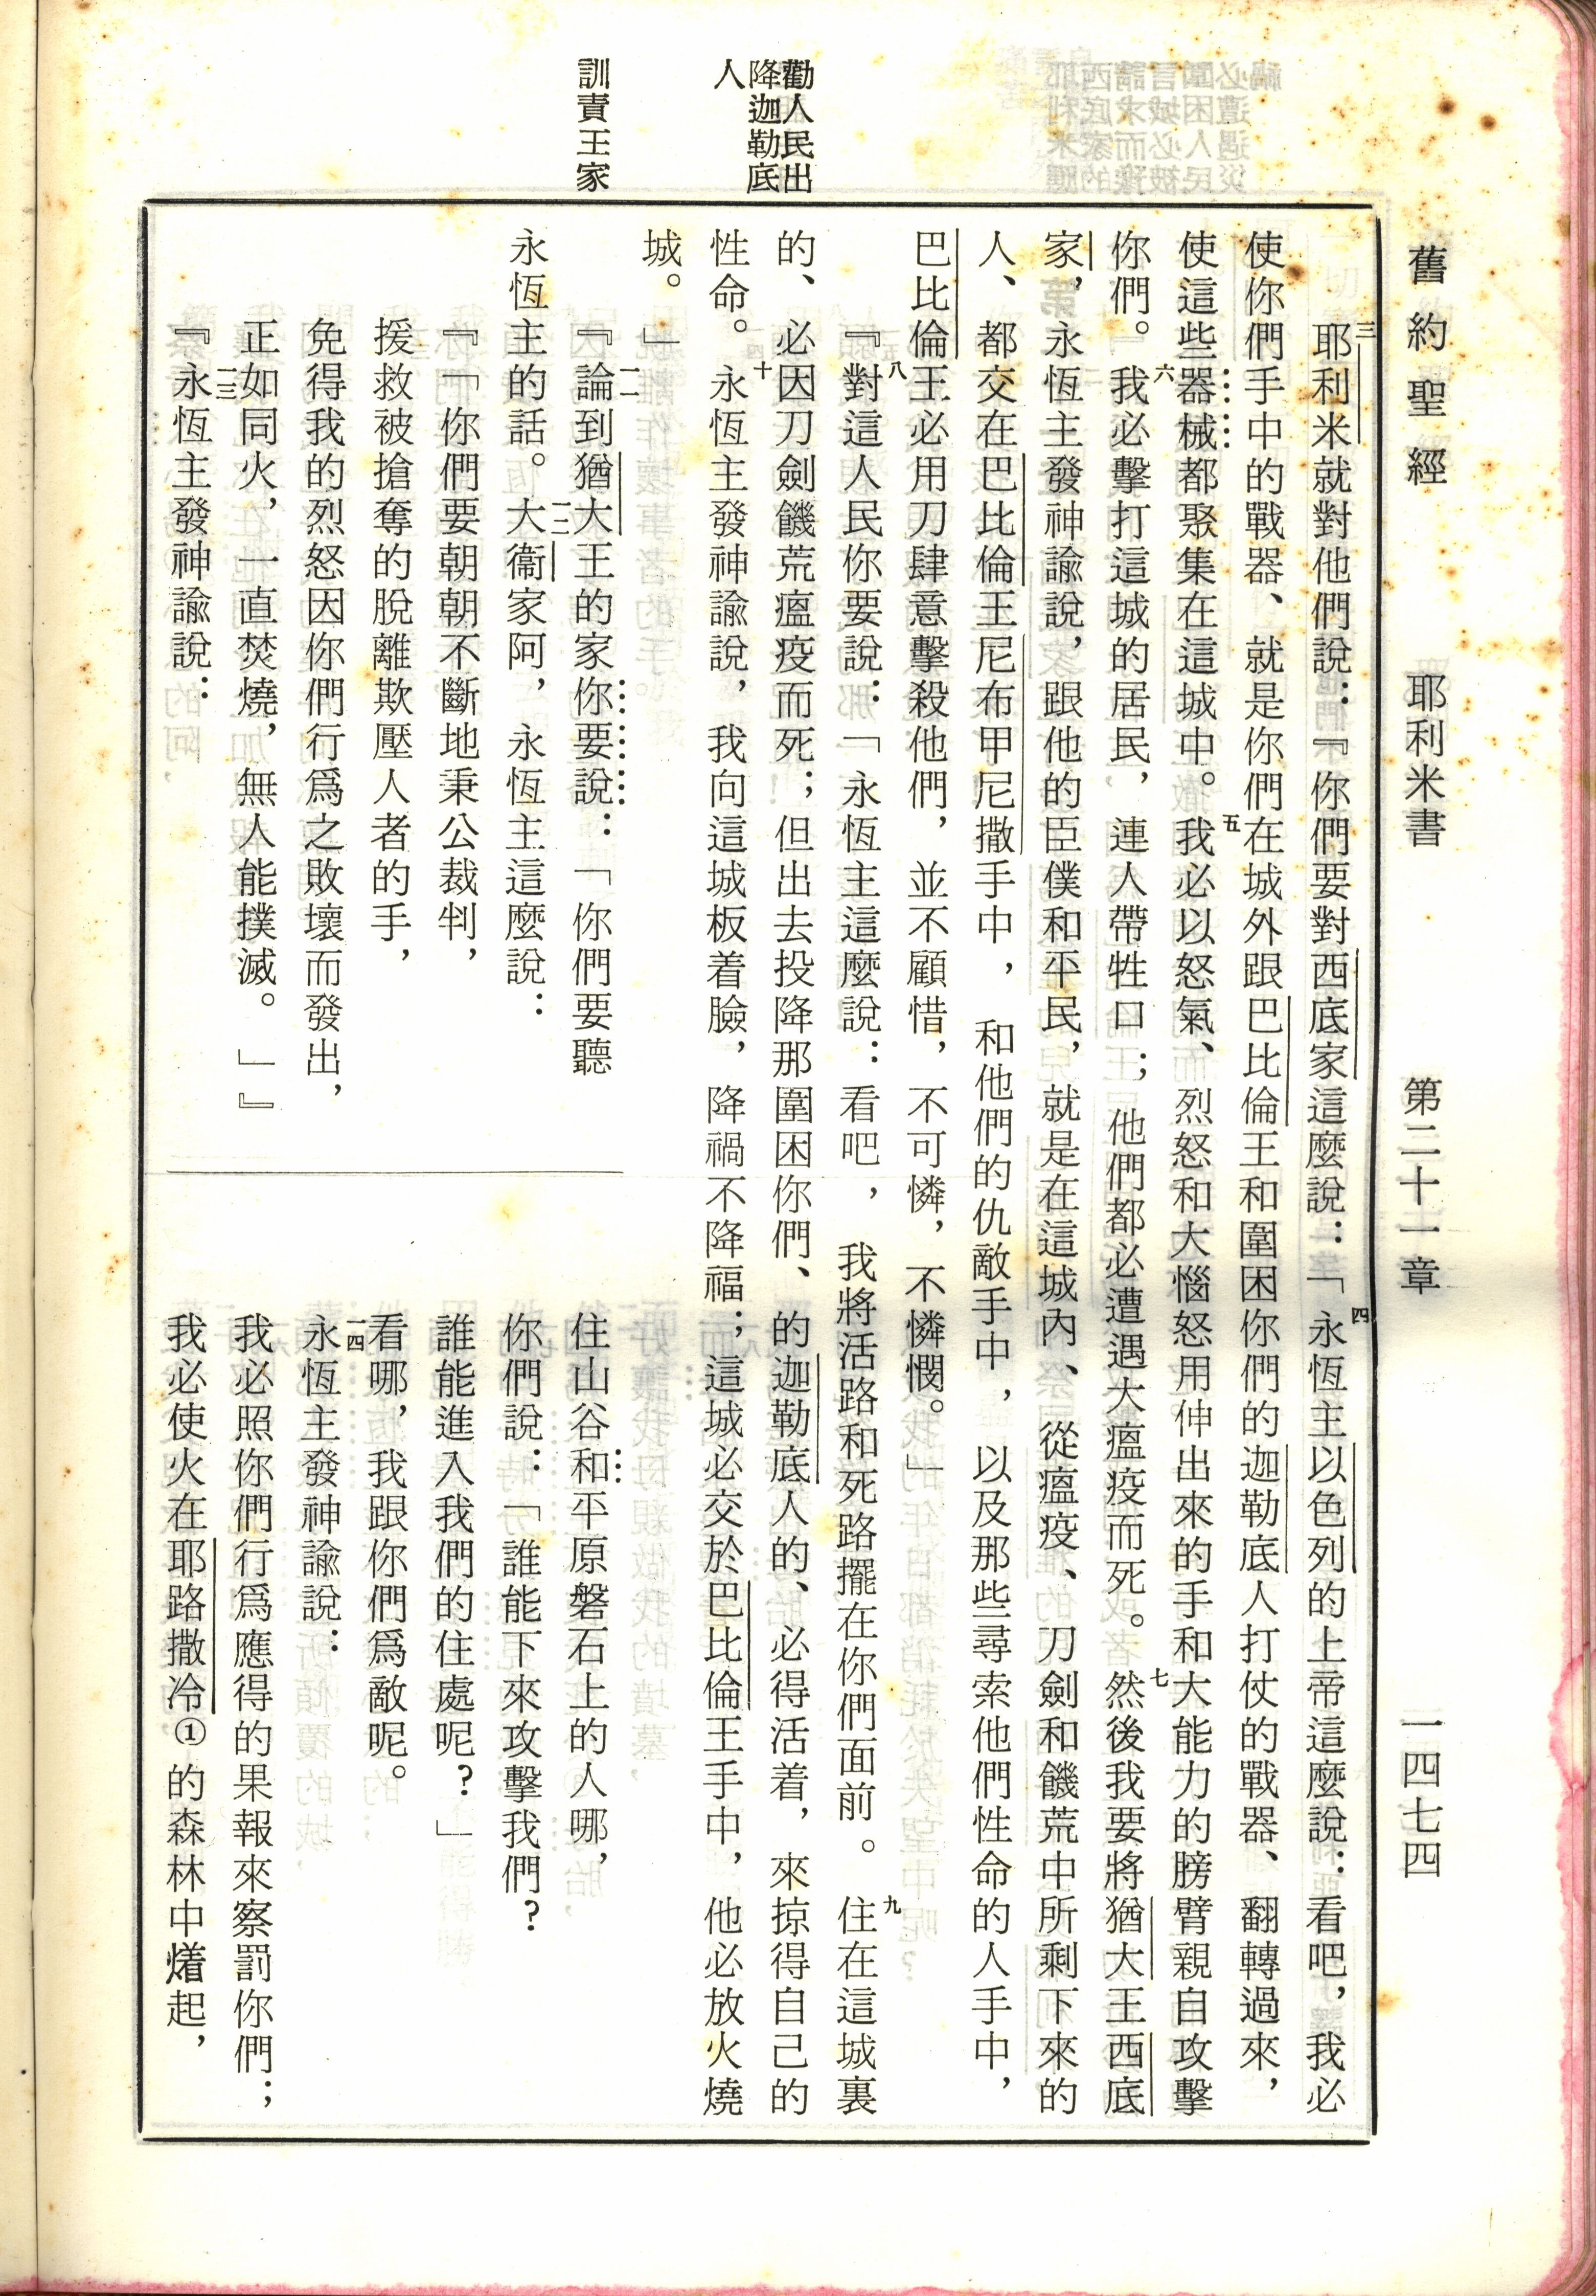 舊約聖經 耶利米書 第二十一章 一四七四
三耶利米就對他們說：『你們要對西底家這麼說：「四永恆主以色列的上帝這麼說：看吧，我必
使你們手中的戰器、就是你們在城外跟巴比倫王和圍困你們的迦勒底人打仗的戰器、翻轉過來，
使這些器械都聚集在這城中。五我必以怒氣、烈怒和大惱怒用伸出來的手和大能力的膀臂親自攻擊
你們。六我必擊打這城的居民，連人帶牲口；他們都必遭遇大瘟疫而死。七然後我要將猶大王西底
家，永恆主發神諭說，跟他的臣僕和平民，就是在這城內、從瘟疫、刀劍和饑荒中所剩下來的
人、都交在巴比倫王尼布甲尼撒手中，和他們的仇敵手中，以及那些尋索他們性命的人手中，
巴比倫王必用刀肆意擊殺他們，並不顧惜，不可憐，不憐憫。」
勸人民出
降迦勒底
人
『八對這人民你要說：「永恆主這麼說：看吧，我將活路和死路擺在你們面前。九住在這城裏
的、必因刀劍饑荒瘟疫而死；但出去投降那圍困你們、的迦勒底人的、必得活着，來掠得自己的
性命。十永恆主發神諭說，我向這城板着臉，降禍不降福；這城必交於巴比倫王手中，他必放火燒
城。」
訓責王家
『一一論到猶大王的家你要說：「你們要聽
永恆主的話。一二大衞家阿，永恆主這麼說：
『「你們要朝朝不斷地秉公裁判，
援救被搶奪的脫離欺壓人者的手，
免得我的烈怒因你們行爲之敗壞而發出，
正如同火，一直焚燒，無人能撲滅。」』
『一三永恆主發神諭說：
住山谷和平原磐石上的人哪，
你們說：「誰能下來攻擊我們？
誰能進入我們的住處呢？」
看哪，我跟你們爲敵呢。
一四永恆主發神諭說：
我必照你們行爲應得的果報來察罰你們；
我必使火在耶路撒冷①的森林中㷮起，